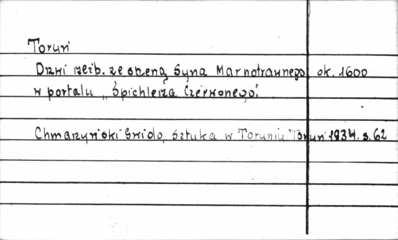 Toruń
Drzwi rzeib. ze sceną Syna Marnotrawnego, ok. 1600
w portalu „Spichlerza Czerwonego".
Chmarzyński Gwido, Sztuka w Toruniu Toruń 1934. s. 62